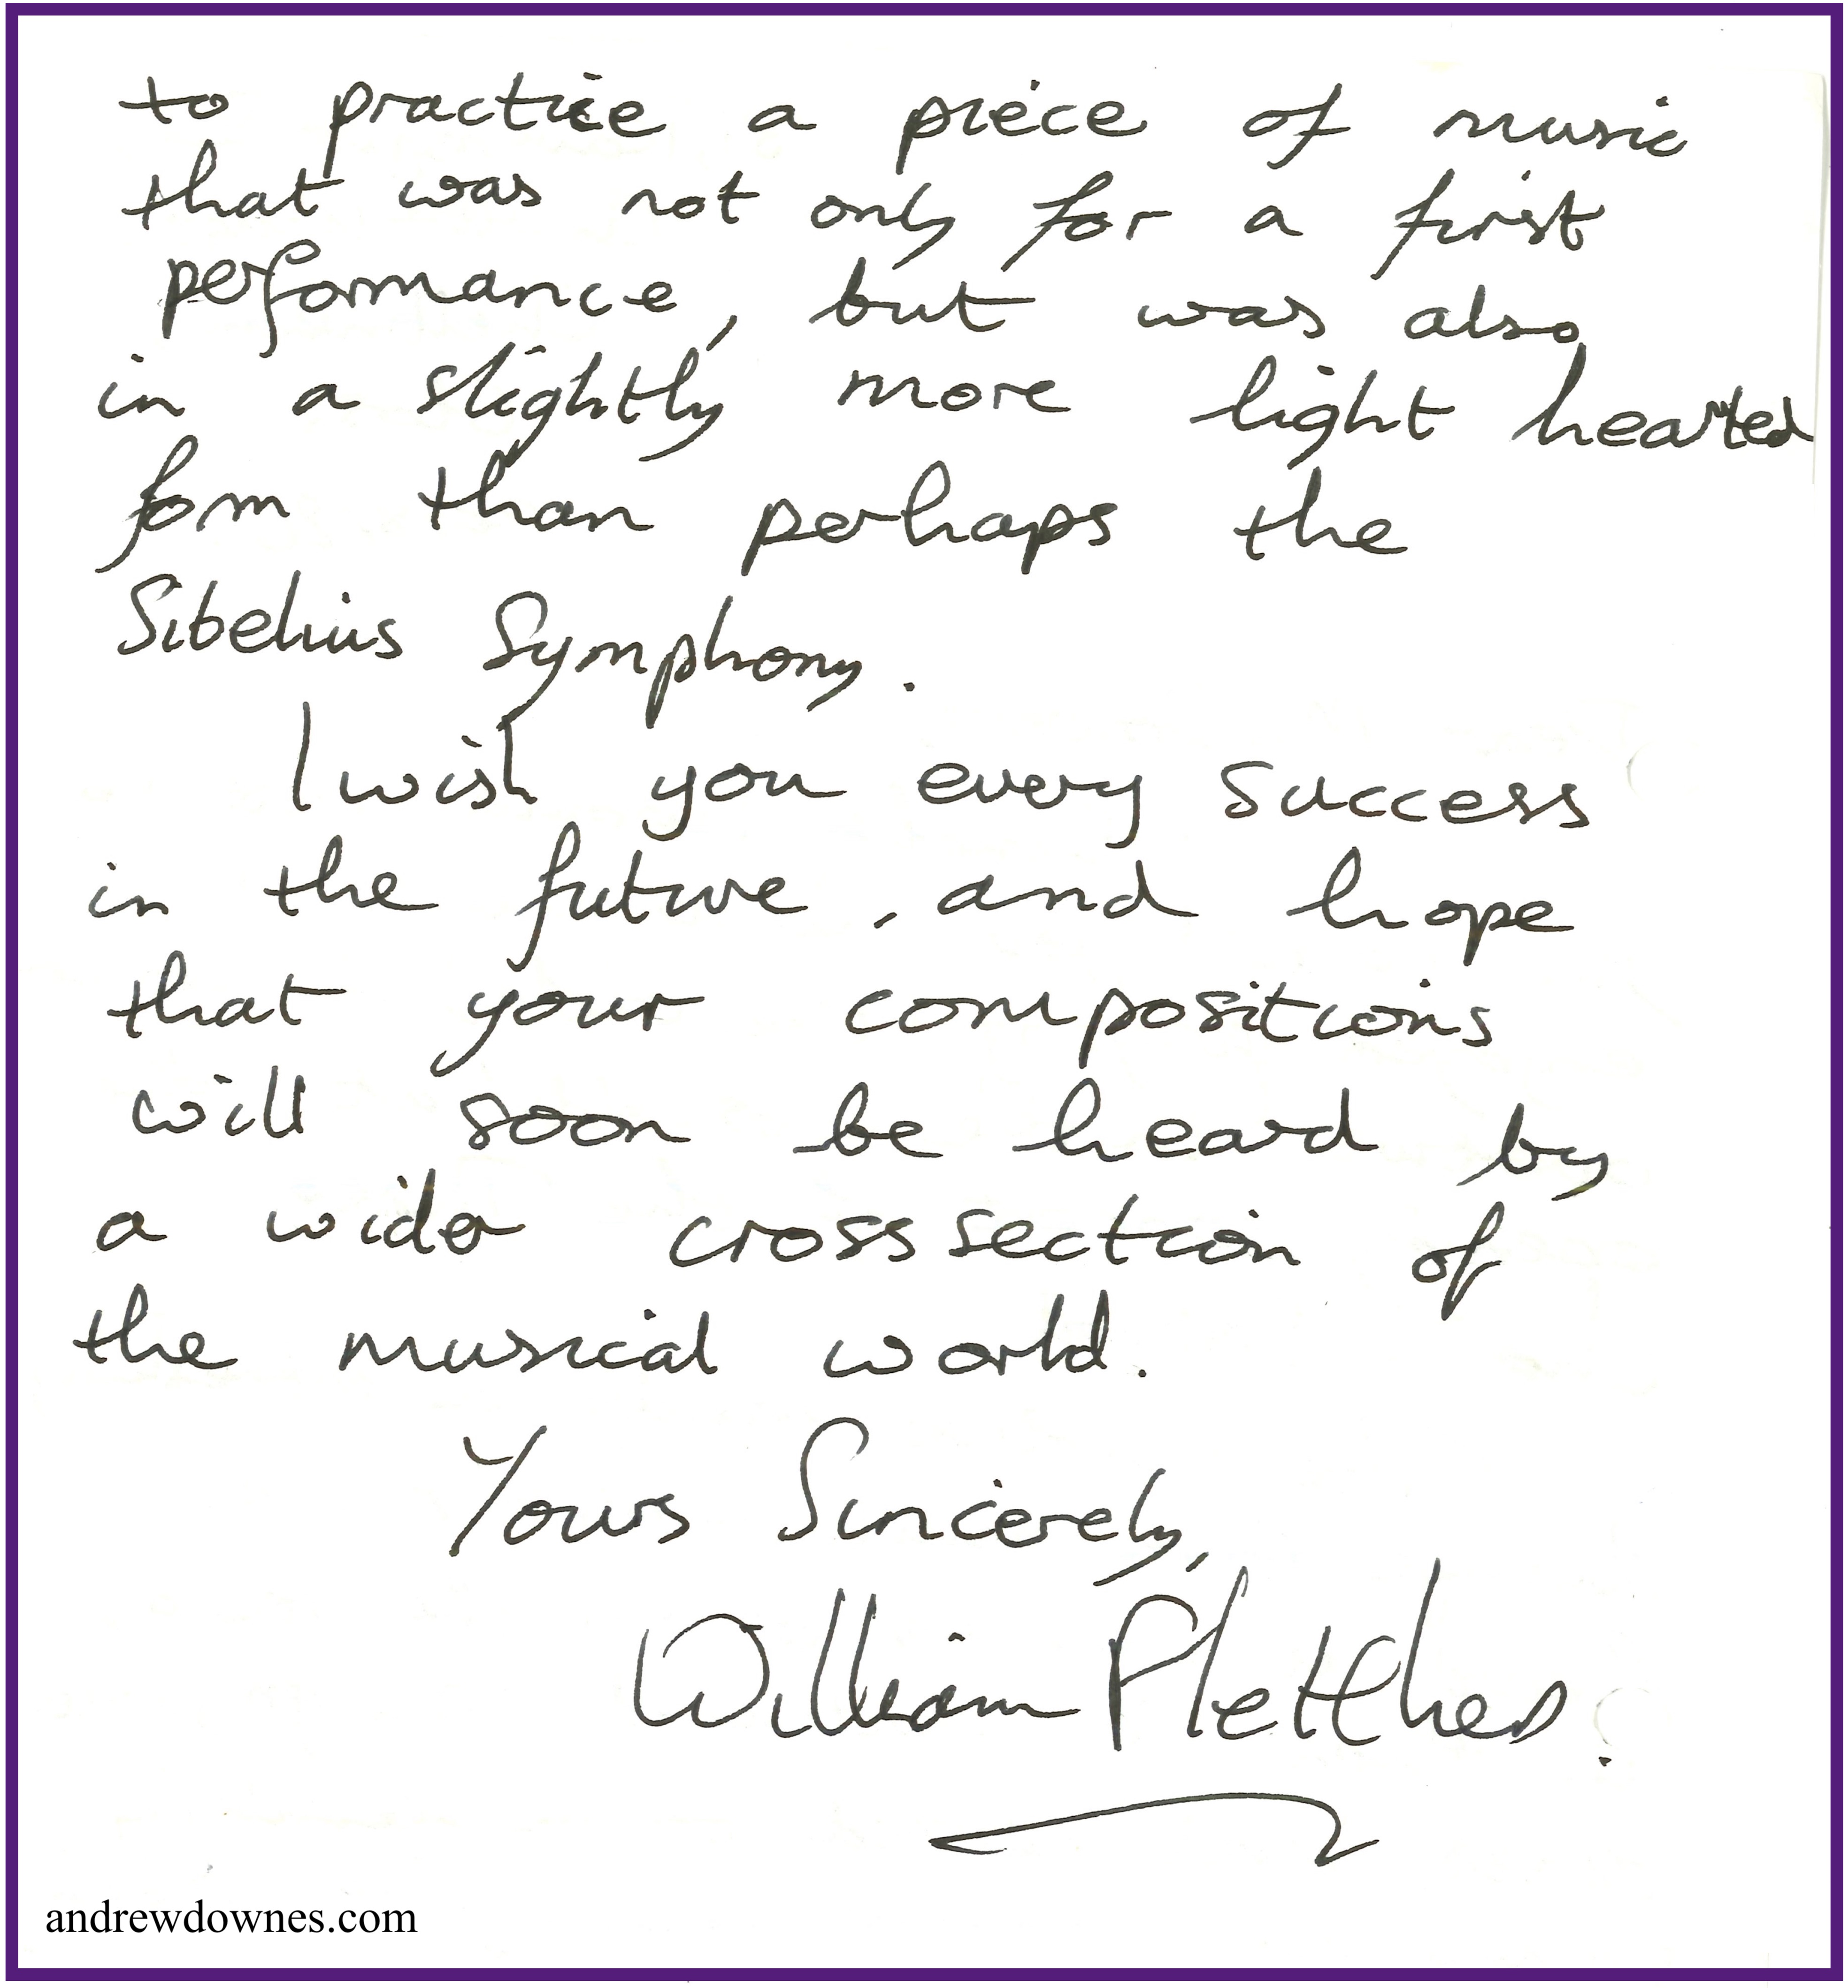 to practice a piece of music
that was not only for a first
performance, but was also
in a slightly more light hearted
form than perhaps the
Sibelius Symphony.
I wish you every success
in the future, and hope
that your compositions
will soon be heard by
a wider cross section of
the musical world.
Yours Sincerely,
William Pletther.
andrewdownes.com